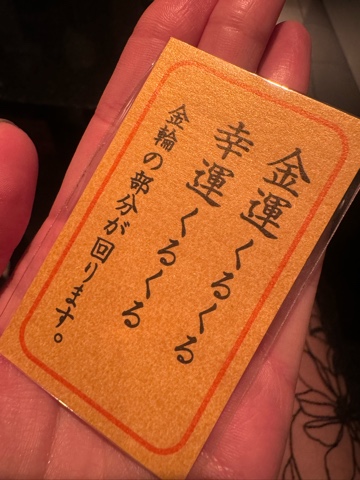 金運くるくる
幸運くるくる
金輪の部分が回ります。